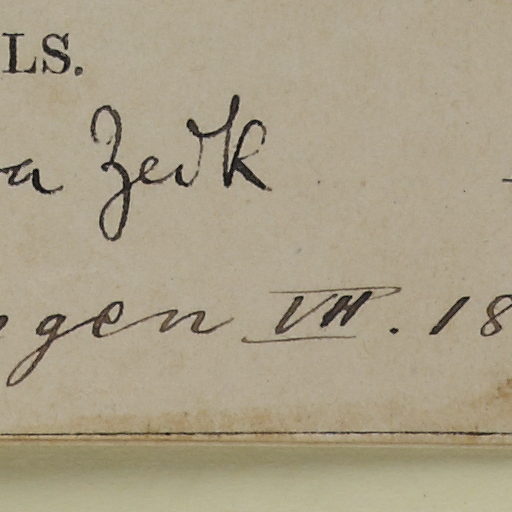 LS.
a Zedk
gen VII. 18